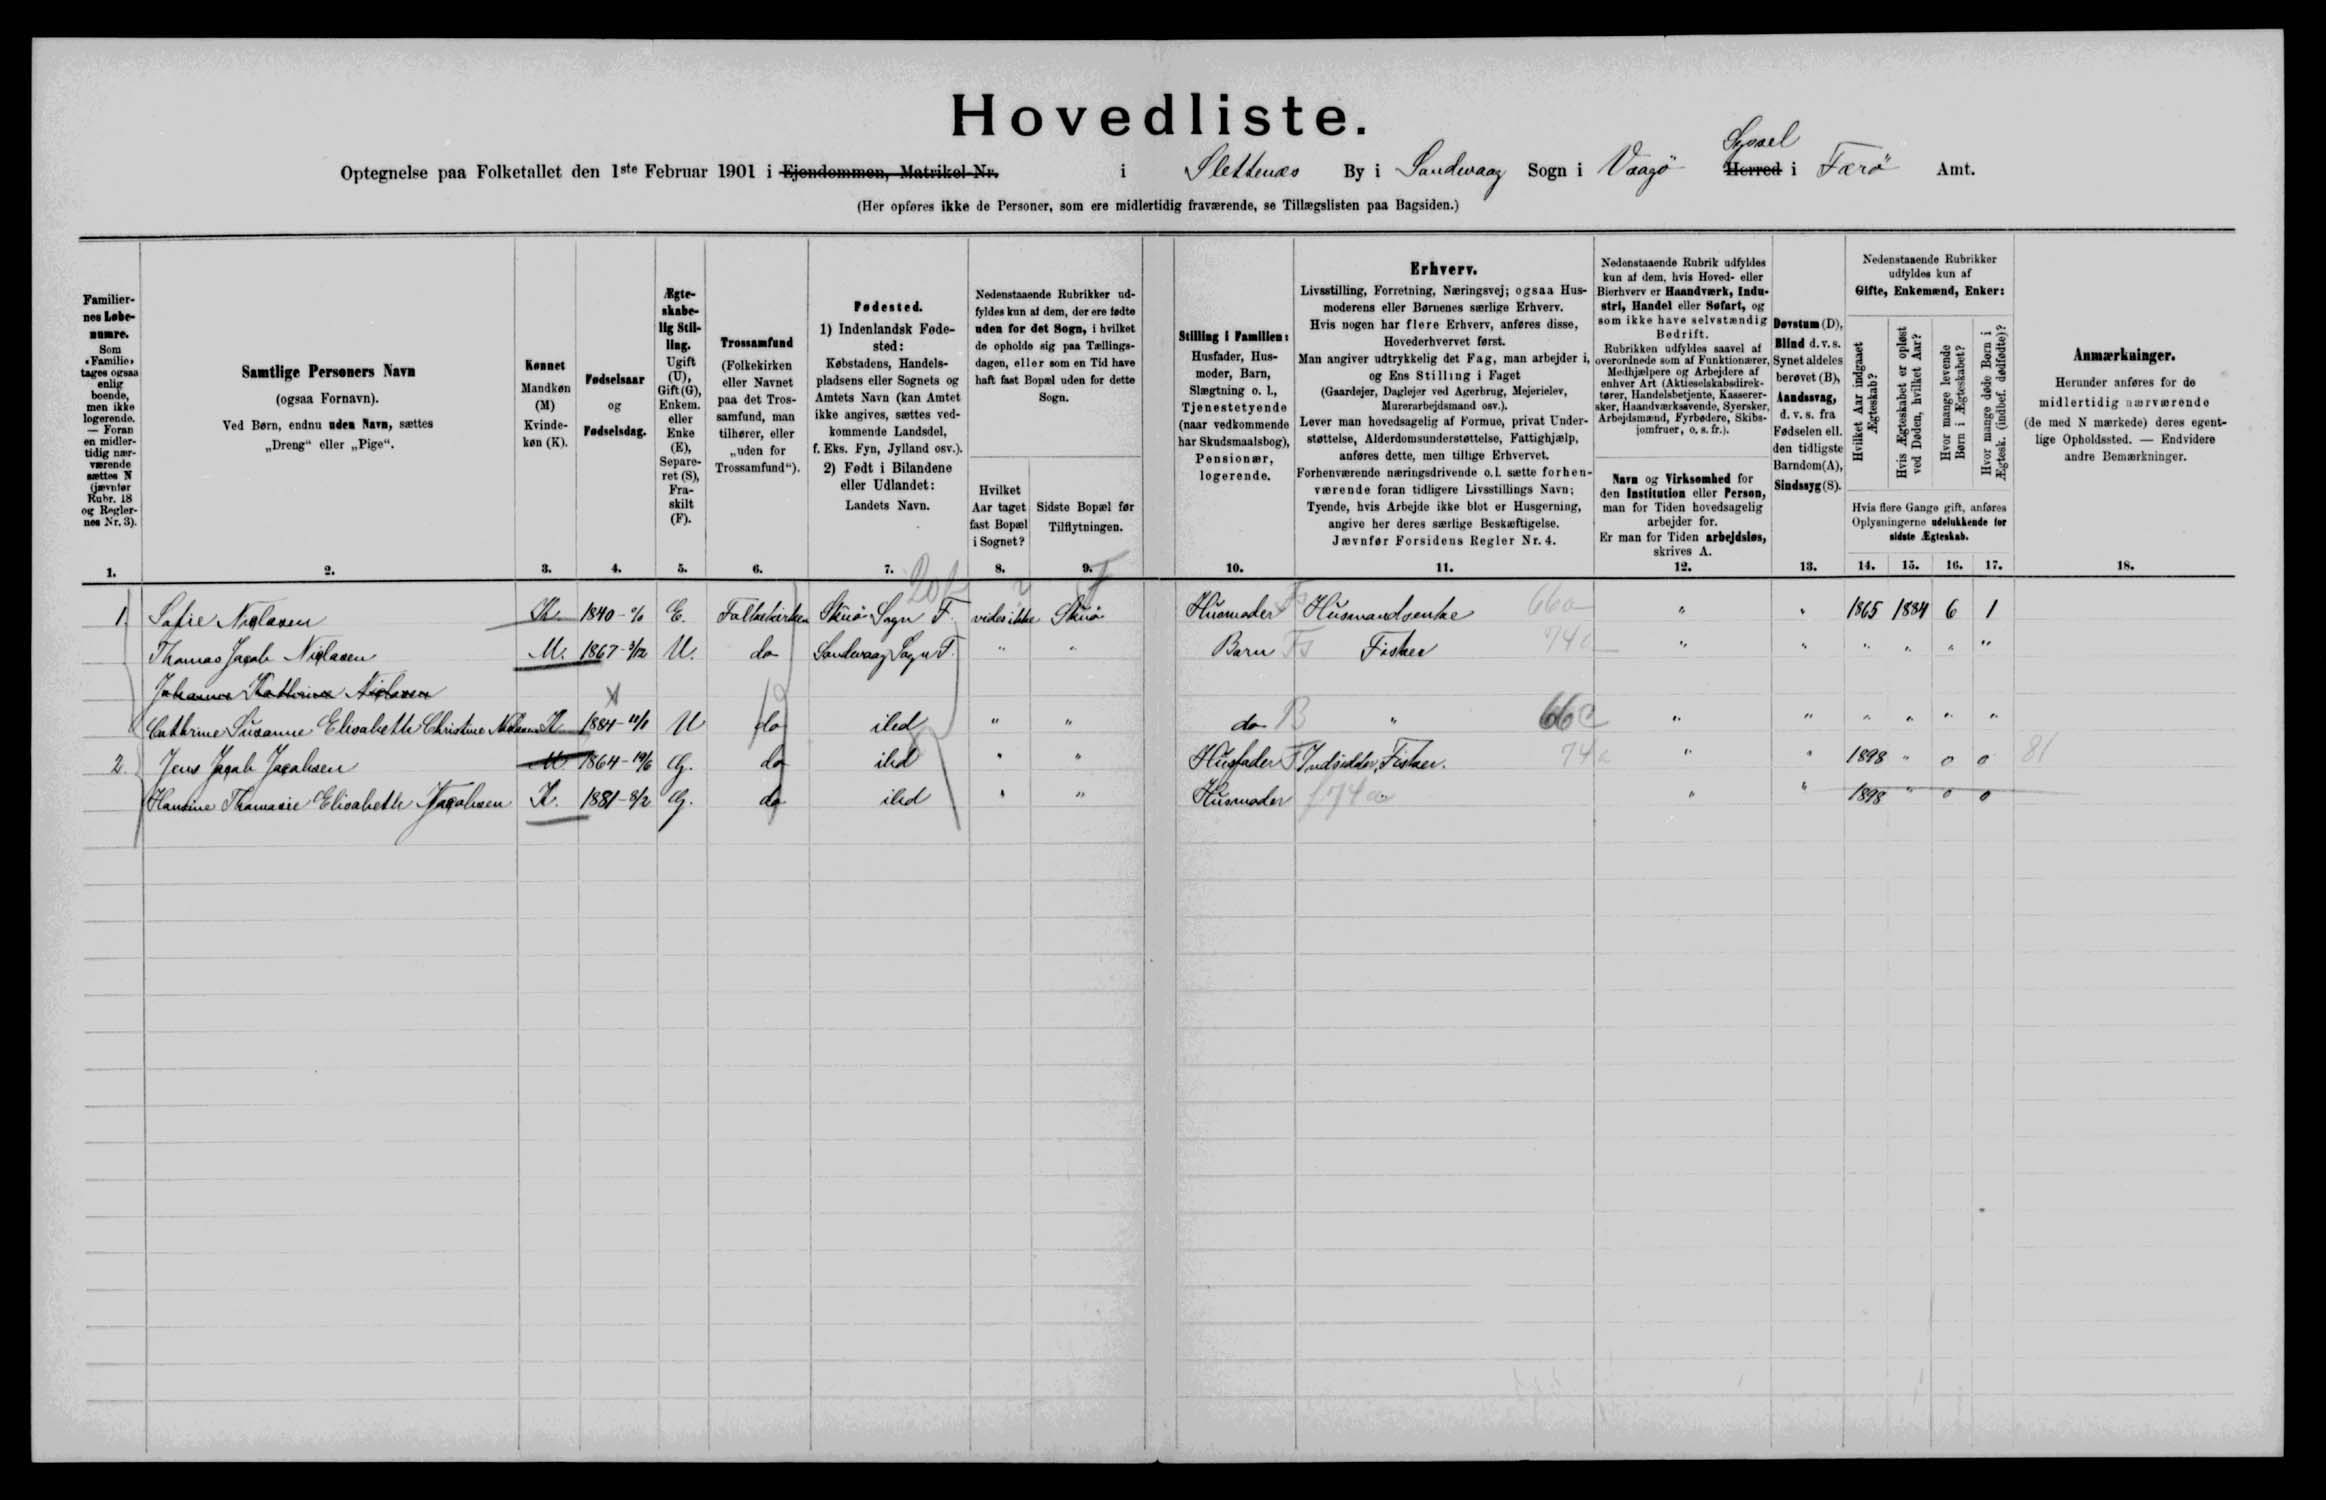 Hovedliste.
Optegnelse paa Folketallet den 1ste Februar 1901 i Ejendommen, Matrikel Nr. i Slettenæs By i Sandevaag Sogn i Vaagö Herred Syssel i Færö Amt.
(Her opføres ikke de Personer, som ere midlertidig fraværende, se Tillægslisten paa Bagsiden.)
Familiernes Løbenumre.
Som «Familie» tages ogsaa enlig boende, men ikke logerende. — Foran en midlertidig nærværende sættes N (jævnfør Rubr. 18 og Reglernes Nr. 3).
Samtlige Personers Navn
(ogsaa Fornavn).
Ved Børn, endnu uden Navn, sættes
„Dreng“ eller „Pige“.
Kønnet
Mandkøn (M)
Kvindekøn (K).
Fødselsaar
og
Fødselsdag.
Ægteskabelig Stilling.
Ugift (U), Gift (G), Enkem. eller Enke (E), Separeret (S), Fraskilt (F).
Trossamfund
(Folkekirken eller Navnet paa det Trossamfund, man tilhører, eller „uden for Trossamfund“).
Fødested.
1) Indenlandsk Fødested:
Købstadens, Handelspladsens eller Sognets og Amtets Navn (kan Amtet ikke angives, sættes vedkommende Landsdel, f. Eks. Fyn, Jylland osv.).
2) Født i Bilandene eller Udlandet:
Landets Navn.
Nedenstaaende Rubrikker udfyldes kun af dem, der ere fødte uden for det Sogn, i hvilket de opholde sig paa Tællingsdagen, eller som en Tid have haft fast Bopæl uden for dette Sogn.
Hvilket Aar taget fast Bopæl i Sognet?
Sidste Bopæl før Tilflytningen.
Stilling i Familien:
Husfader, Husmoder, Barn, Slægtning o. l., Tjenestetyende (naar vedkommende har Skudsmaalsbog), Pensionær, logerende.
Erhverv.
Livsstilling, Forretning, Næringsvej; ogsaa Husmoderens eller Børnenes særlige Erhverv.
Hvis nogen har flere Erhverv, anføres disse, Hovederhvervet først.
Man angiver udtrykkelig det Fag, man arbejder i, og Ens Stilling i Faget
(Gaardejer, Daglejer ved Agerbrug, Mejerielev, Murerarbejdsmand osv.).
Lever man hovedsagelig af Formue, privat Understøttelse, Alderdomsunderstøttelse, Fattighjælp, anføres dette, men tillige Erhvervet.
Forhenværende næringsdrivende o. l. sætte forhenværende foran tidligere Livsstillings Navn;
Tyende, hvis Arbejde ikke blot er Husgerning, angive her deres særlige Beskæftigelse.
Jævnfør Forsidens Regler Nr. 4.
Nedenstaaende Rubrik udfyldes kun af dem, hvis Hoved- eller Bierhverv er Haandværk, Industri, Handel eller Søfart, og som ikke have selvstændig Bedrift.
Rubrikken udfyldes saavel af overordnede som af Funktionærer, Medhjælpere og Arbejdere af enhver Art (Aktieselskabsdirektører, Handelsbetjente, Kasserersker, Haandværkssvende, Syersker, Arbejdsmænd, Fyrbødere, Skibsjomfruer, o. s. fr.).
Navn og Virksomhed for den Institution eller Person, man for Tiden hovedsagelig arbejder for.
Er man for Tiden arbejdsløs, skrives A.
Døvstum (D), Blind d. v. s. Synet aldeles berøvet (B), Aandssvag, d. v. s. fra Fødselen ell. den tidligste Barndom (A), Sindssyg (S).
Nedenstaaende Rubrikker udfyldes kun af
Gifte, Enkemænd, Enker:
Hvilket Aar indgaaet Ægteskab?
Hvis Ægteskabet er opløst ved Døden, hvilket Aar?
Hvor mange levende Børn i Ægteskabet?
Hvor mange døde Børn i Ægtesk. (indbef. dødfødte)?
Hvis flere Gange gift, anføres Oplysningerne udelukkende for sidste Ægteskab.
Anmærkninger.
Herunder anføres for de midlertidig nærværende (de med N mærkede) deres egentlige Opholdssted. — Endvidere andre Bemærkninger.
1. 2. 3. 4. 5. 6. 7. 8. 9. 10. 11. 12. 13. 14. 15. 16. 17. 18.
1. Sofie Niclasen K. 1840 E. Folkekirken Skuö Sogn F. vides ikke Skuö Husmoder Husmandsenke 66a " " 1865 1884 6 1
Thomas Jacob Niclasen M. 1867-3/12 U. do Sandevaag Sogn F. " " Barn Fisker 74a " " " " " "
Johanne Kathrine Niclasen
Cathrine Susanne Elisabeth Christine Niclasen K 1884-11/1 U do ibd " " do B " 66a " " " " " "
2. Jens Jacob Jacobsen M 1864-19/6 G. do ibd " " Husfader F Indsidder, Fisker. 74a " " 1898 " 0 0 81
Hansine Thomasie Elisabeth Jacobsen K. 1881-8/2 G. do ibd " " Husmoder f 74a " " 1898 " 0 0